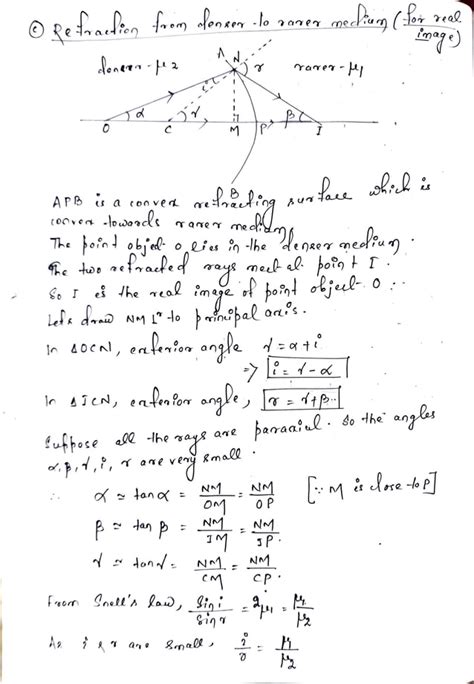 © Refraction from denser to rarer medium (for real image)
A N r
denser - μ2 rarer - μ1
i
α γ β
O C M P I
B
APB is a convex refracting surface which is
convex towards rarer medium,
The point object O lies in the denser medium.
The two refracted rays meet at point I.
So I is the real image of point object O :.
Lets draw NM ⊥r to principal axis.
In ΔOCN, exterior angle γ = α + i
⇒ i = γ - α
In ΔICN, exterior angle, r = γ + β..
Suppose all the rays are paraxial. So the angles
α, β, γ, i, r are very small.
∴ α ≃ tan α = NM/OM = NM/OP [∵ M is close to P]
β ≃ tan β = NM/IM = NM/IP.
γ ≃ tan γ = NM/CM = NM/CP.
From Snell's law, sin i/sin r = 2μ1 = μ1/μ2
As i & r are small, i/r = μ1/μ2